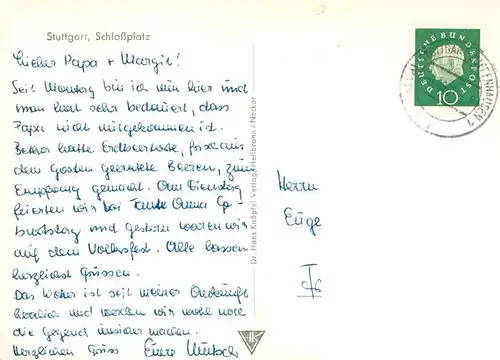 Stuttgart, Schloßplatz
Lieber Papa + Margit!
Seit Montag bin ich nun hier und
man hat sehr bedauert, dass
Papa nicht mitgekommen ist.
hatte Erdbeertorte, frisch aus
dem Garten geerntete Beeren, zum
Empfang gemacht. Am Dienstag
feierten wir bei Tante Anna Ge-
burtstag und gestern waren wir
auf dem Volksfest. Alle lassen
herzlichst Grüssen.
Das Wetter ist seit meiner Ankunft
herrlich und werden wir wohl noch
die Gegend unsicher machen.
Herzlichen Gruss Eure
Dr. Hans Knäpfel Verlag, Heilbronn/Neckar
DEUTSCHE BUNDESPOST
10
Herrn
Euge